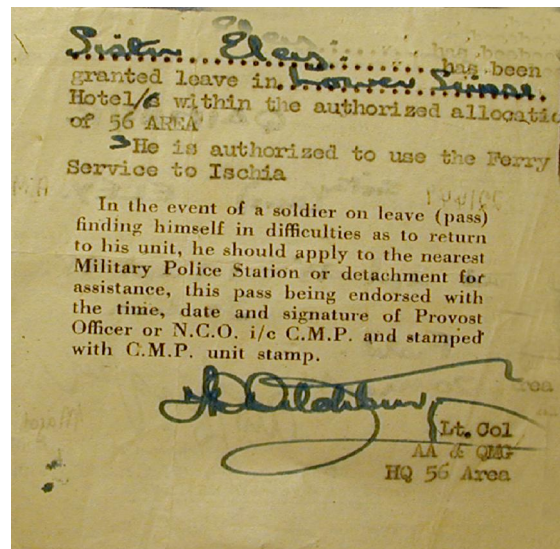 Sister Eley has been
granted leave in
Hotel/s within the authorized allocatio
of 56 AREA
SHe is authorized to use the Ferry
Service to Ischia
In the event of a soldier on leave (pass)
finding himself in difficulties as to return
to his unit, he should apply to the nearest
Military Police Station or detachment for
assistance, this pass being endorsed with
the time, date and signature of Provost
Officer or N.C.O. i/c C.M.P. and stamped
with C.M.P. unit stamp.
Lt. Col
AA & QMG
HQ 56 Area